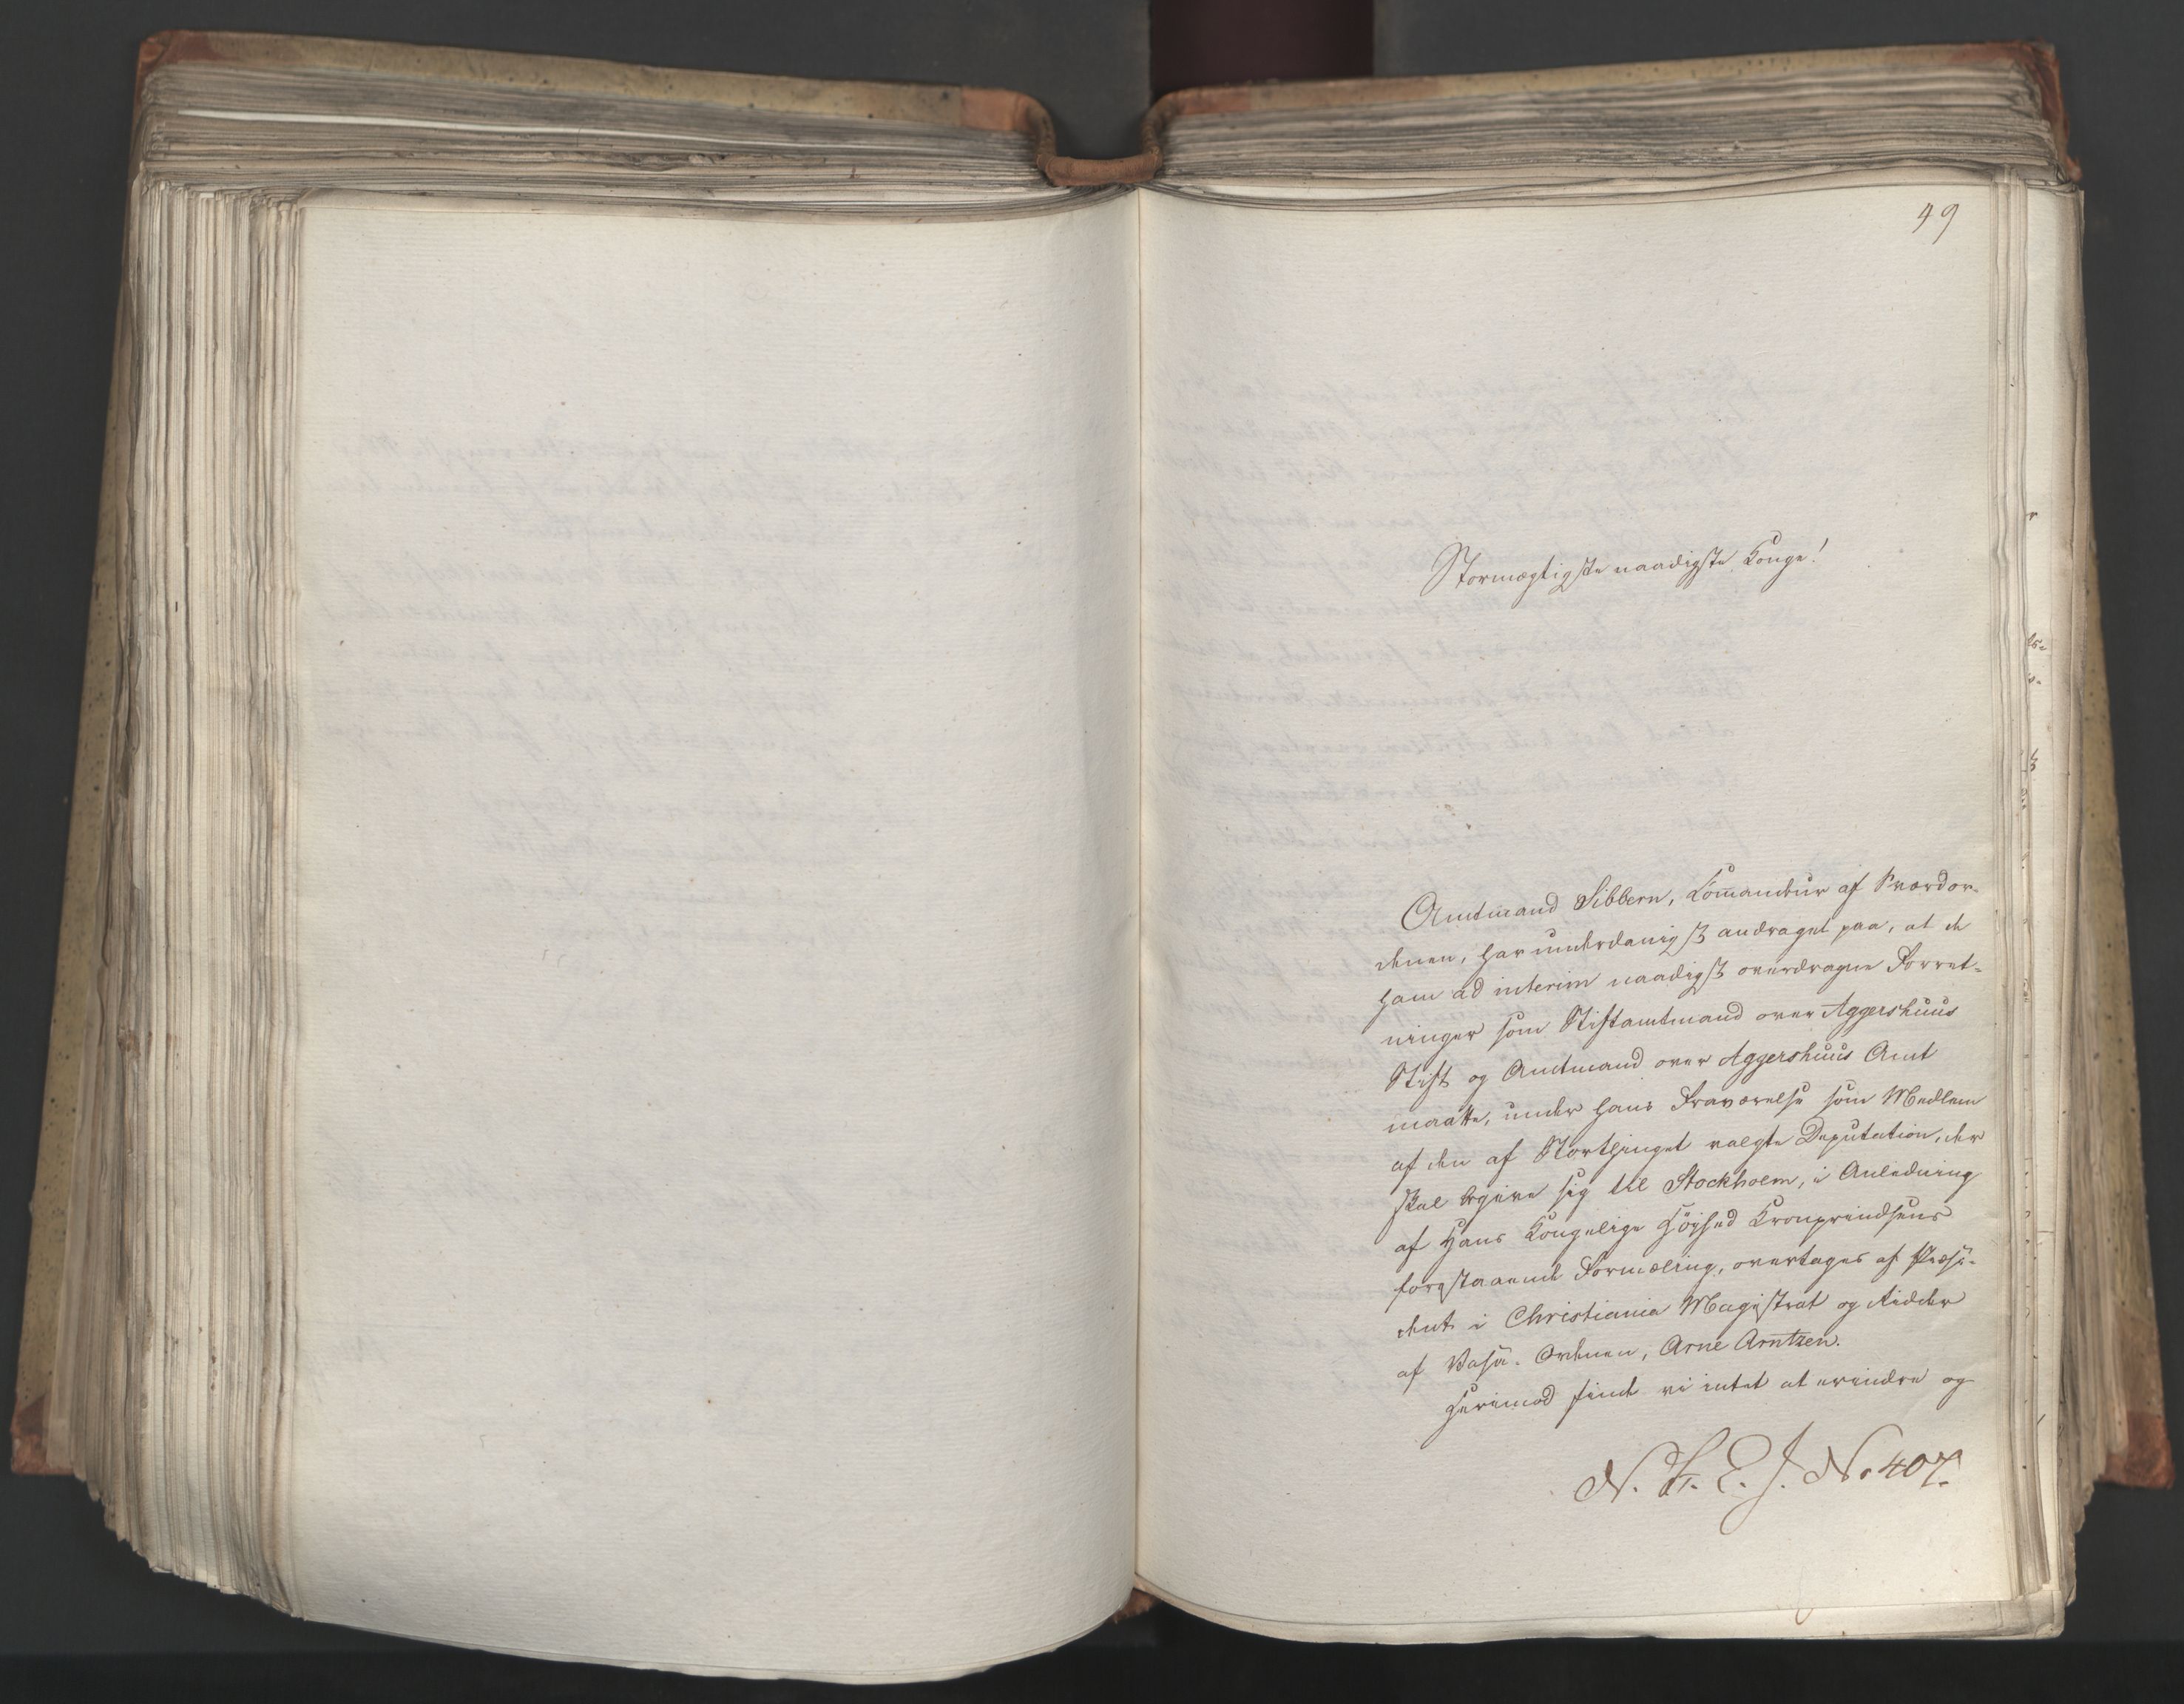 49
Stormægtigste naadigste Konge!
Amtmand Sibbern, Com̄andeur af Sværdor-
denen, har underdanigst andraget paa, at de
ham ad interim naadigst overdragne Forret-
ninger som Stiftamtmand over Aggershuus
Stift og Amtmand over Aggershuus Amt
maatte, under hans Fraværelse som Medlem
af den af Storthinget valgte Deputation, der
skal begive sig til Stockholm, i Anledning
af Hans Kongelige Höihed Kronprindsens
forestaaende Formæling, overtages af Præsi-
dent i Christiania Magistrat og Ridder
af Vasa-Ordenen, Arne Arntzen.
Herimod finde vi intet at erindre og
N. H. E. J. No 407.